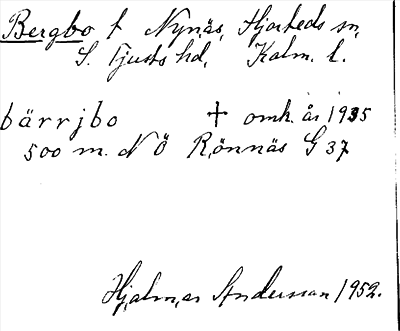 Bergbo t Nynäs, Hjorteds sn,
S. Tjusts hd, Kalm. l.
bärrjbo † omk. år 1935
500 m. N Ö Rönnäs G 37
Hjalmar Andersson 1952.